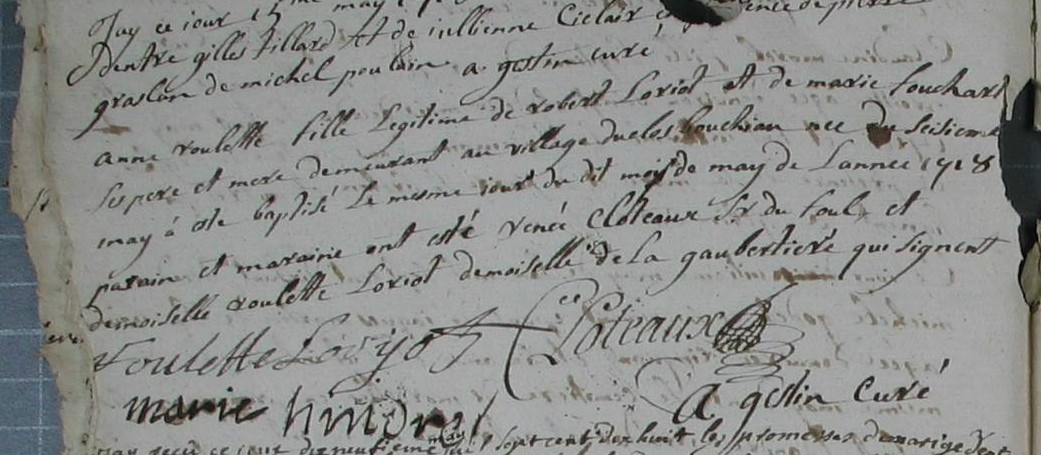 Jay ce iour 15me may
Dentre gilles tillard et de iullienne Ciclair de pierre
graslan de michel poulain a. gestin curé
anne roulette fille Legitime de robert Loriot et de marie louchart
ses pere et mere demeurant au village duclos bouchiau nee du seisieme
may à este baptisé Le mesme iour du dit mois de may de Lannee 1718
parain et maraine ont esté renée Cloteaux Sr du foul et
demoiselle roulette Loriot demoiselle de La gaubertiere qui signent
roulette Loryot Cloteaux
marie a gestin Curé
ce iour dixneufieme may sept cent dix huit les promesses de mariage dent